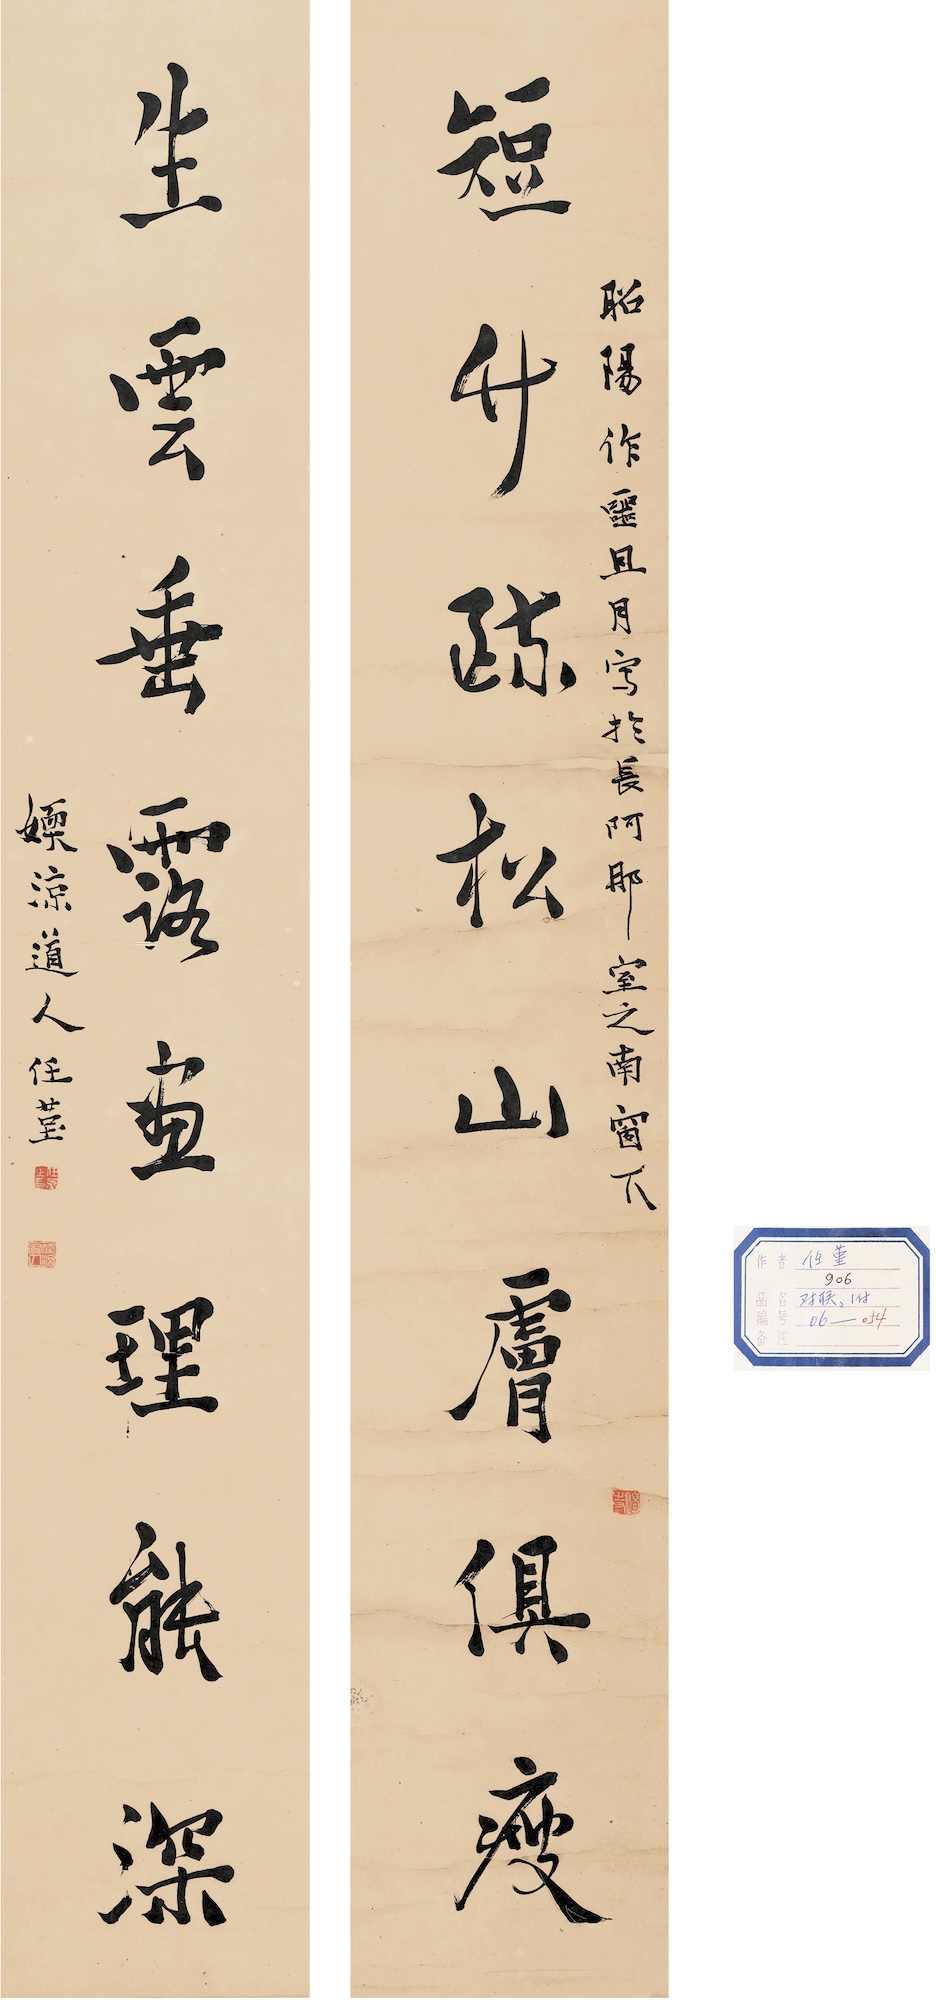 昭陽作噩且月寫於長阿那室之南窗下
短竹疏松山膚俱瘦
生雲垂露畫理能深
媆涼道人任堇
作者 任堇
906
品名 对联、1付
编号 06—054
备注